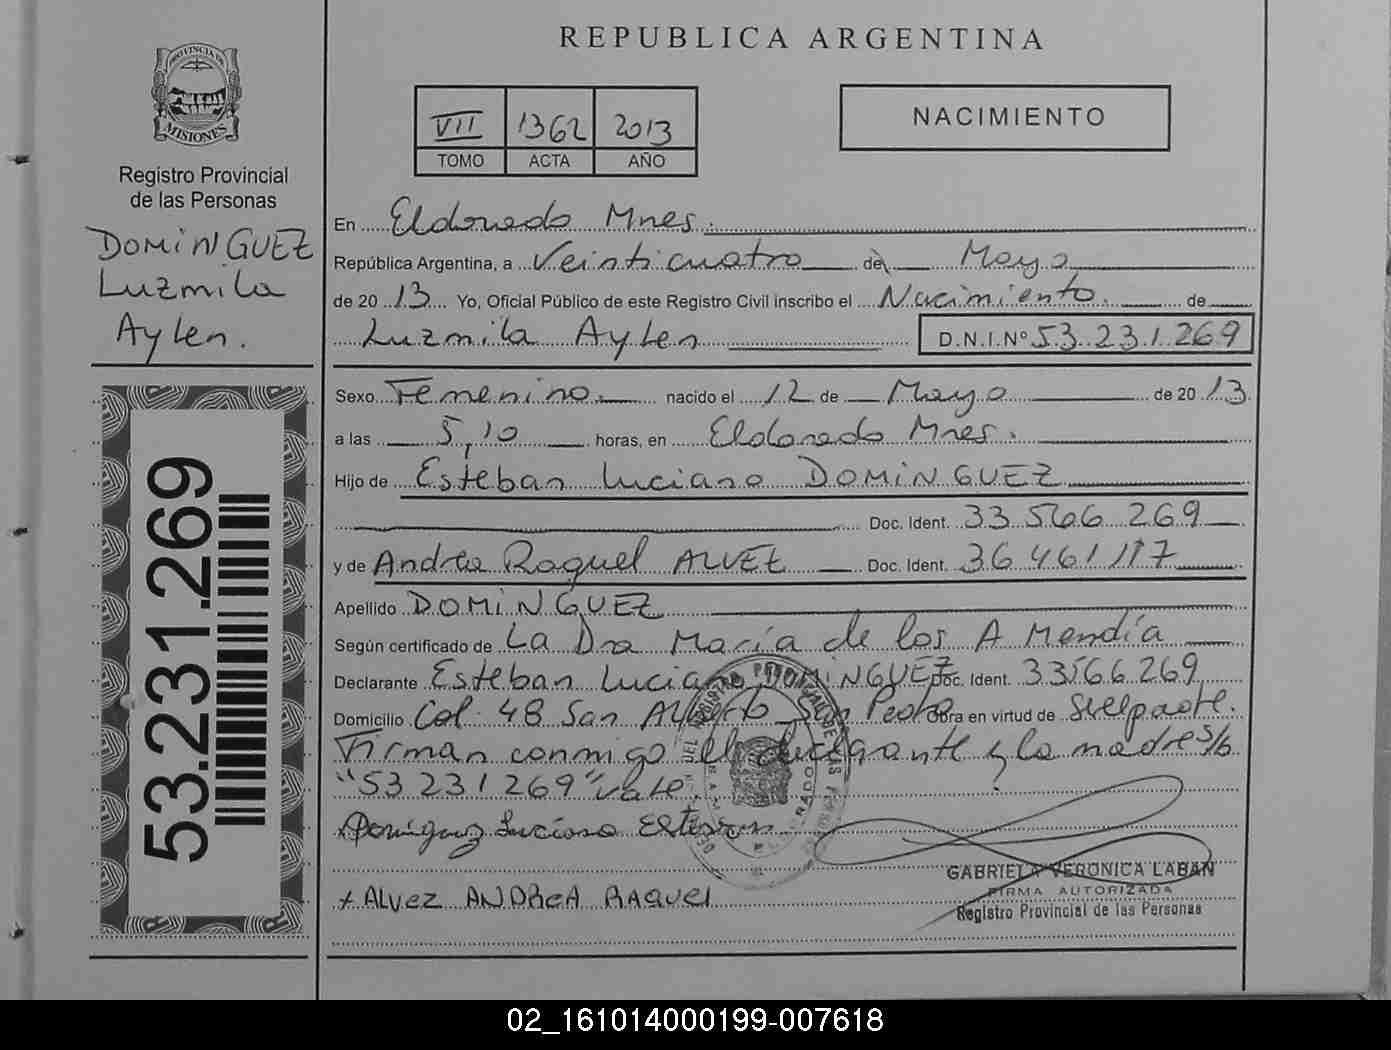 REPUBLICA ARGENTINA
PROVINCIA DE MISIONES
Registro Provincial
de las Personas
DOMINGUEZ
Luzmila
Aylen.
53.231.269
VII 1362 2013
TOMO ACTA AÑO
NACIMIENTO
En Eldorado Mnes.
República Argentina, a Veinticuatro de Mayo
de 2013 Yo, Oficial Público de este Registro Civil inscribo el Nacimiento. de
Luzmila Aylen D.N.I.Nº 53.231.269
Sexo Femenino. nacido el 12 de Mayo de 2013
a las 5,10 horas, en Eldorado Mnes.
Hijo de Esteban Luciano DOMINGUEZ
Doc. Ident. 33.566.269
y de Andrea Raquel ALVEZ Doc. Ident. 36 461 117
Apellido DOMINGUEZ
Según certificado de La Dra María de los A Mendía
Declarante Esteban Luciano DOMINGUEZ Doc. Ident. 33566269
Domicilio Col. 48 San Alberto San Pedro Obra en virtud de
Firman conmigo el declarante y la madre s/b
"53 231 269" vale.
Dominguez Luciano Esteban
x ALVEZ ANDREA RAQUEL
GABRIELA VERONICA LABAN
FIRMA AUTORIZADA
Registro Provincial de las Personas
02_161014000199-007618